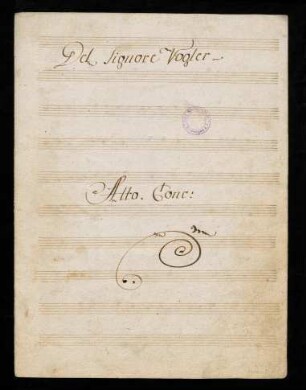 Del Signore Vogler
Alto. Conc: